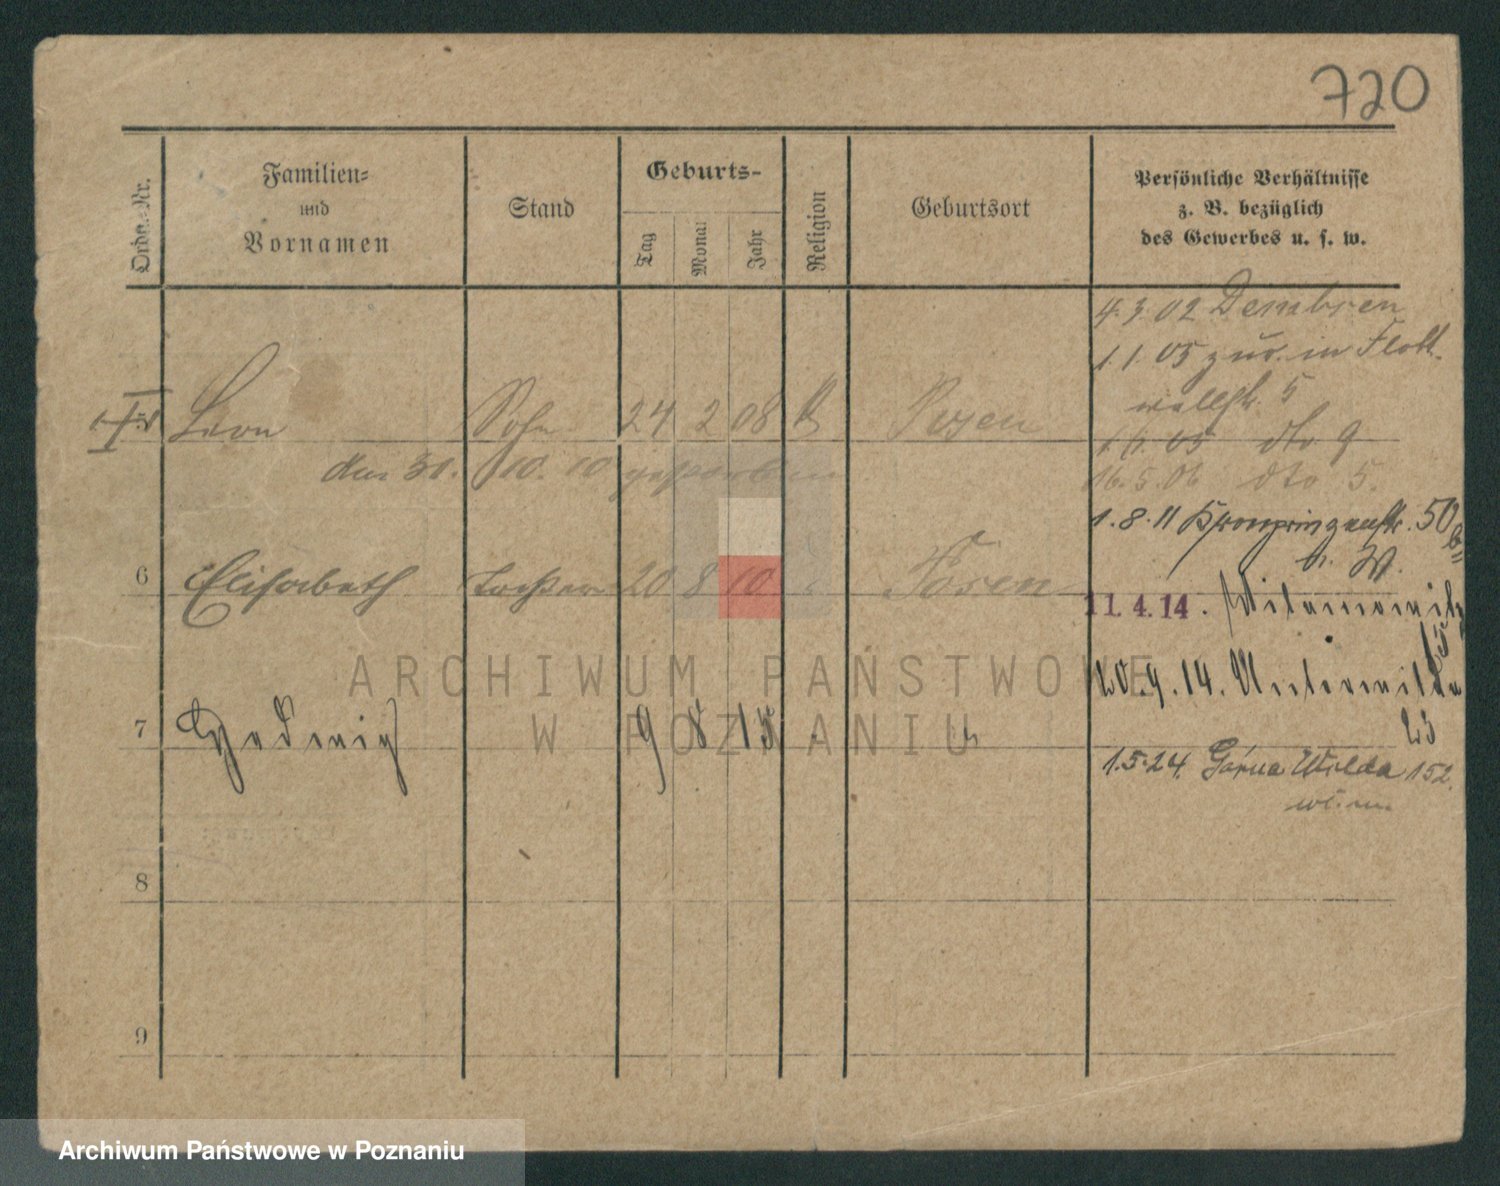 720
Ordn.-Nr.
Familien-
und
Vornamen
Stand
Geburts-
Tag
Monat
Jahr
Religion
Geburtsort
Persönliche Verhältnisse
z. B. bezüglich
des Gewerbes u. s. w.
4.3.02 Dembsen
1.1.05 zur. in Flott-
wellstr. 5
Leon Sohn 24 2 08 Posen
dto 9
am 31. 10. 10 gestorben
16.5.06 dto 5.
1.8.11 Kronprinzenstr. 50
6 Elisabeth Tochter 20 8 10 Posen
11.4.14.
20.9.14. Unterwilda
23
7 Hedwig 9 8 15
1.5.24. Górna Wilda 152
8
9
ARCHIWUM PAŃSTWOWE
W POZNANIU
Archiwum Państwowe w Poznaniu